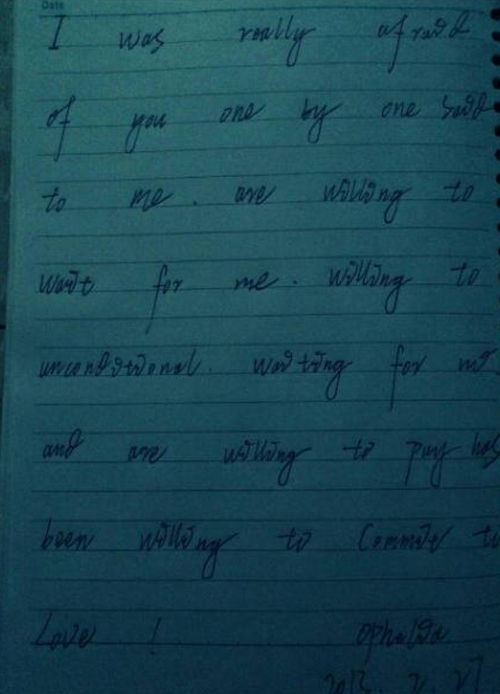 Date
I was really afraid
of you one by one said
to me . are willing to
wait for me . willing to
unconditional . waiting for me
and are willing to pay has
been willing to commit to
Love !